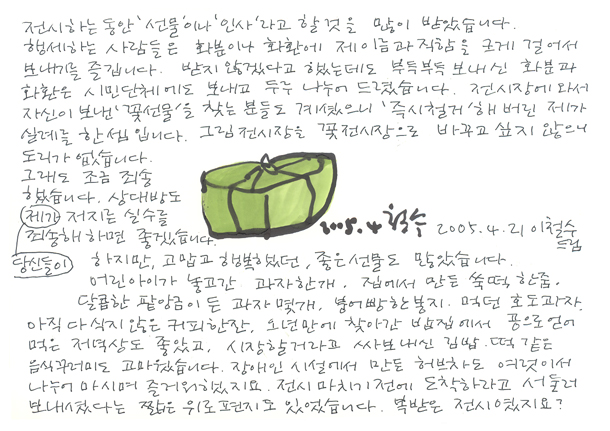 전시하는 동안 '선물'이나 '인사'라고 할 것을 많이 받았습니다.
행세하는 사람들은 화분이나 화환에 제 이름과 직함을 크게 걸어서
보내기를 즐깁니다. 받지 않겠다고 했는데도 부득부득 보내신 화분과
화환은 시민단체에도 보내고 두루 나누어 드렸습니다. 전시장에 와서
자신이 보낸 '꽃선물'을 찾는 분들도 계셨으니 '즉시철거'해 버린 제가
실례를 한 셈입니다. 그림전시장을 꽃전시장으로 바꾸고 싶지 않으니
도리가 없습니다.
그래도 조금 죄송
했습니다. 상대방도
제가 저지른 실수를
죄송해 하면 좋겠습니다.
당신들이
2005.4 철수
2005.4.21 이철수
드림
하지만, 고맙고 행복했던, 좋은 선물도 많았습니다.
어린아이가 놓고간 과자한개, 집에서 만든 쑥떡 한줌,
달콤한 팥앙금이 든 과자 몇개, 붕어빵 한봉지. 먹던 호도과자,
아직 다 식지 않은 커피한잔, 오년만에 찾아간 밥집에서 공으로 얻어
먹은 저녁상도 좋았고, 시장할거라고 싸보내신 김밥. 떡 같은
음식꾸러미도 고마웠습니다. 장애인 시설에서 만든 허브차도 여럿이서
나누어 마시며 즐거워했지요. 전시 마치기 전에 도착하라고 서둘러
보내셨다는 짧은 위로편지도 있었습니다. 복받은 전시였지요?